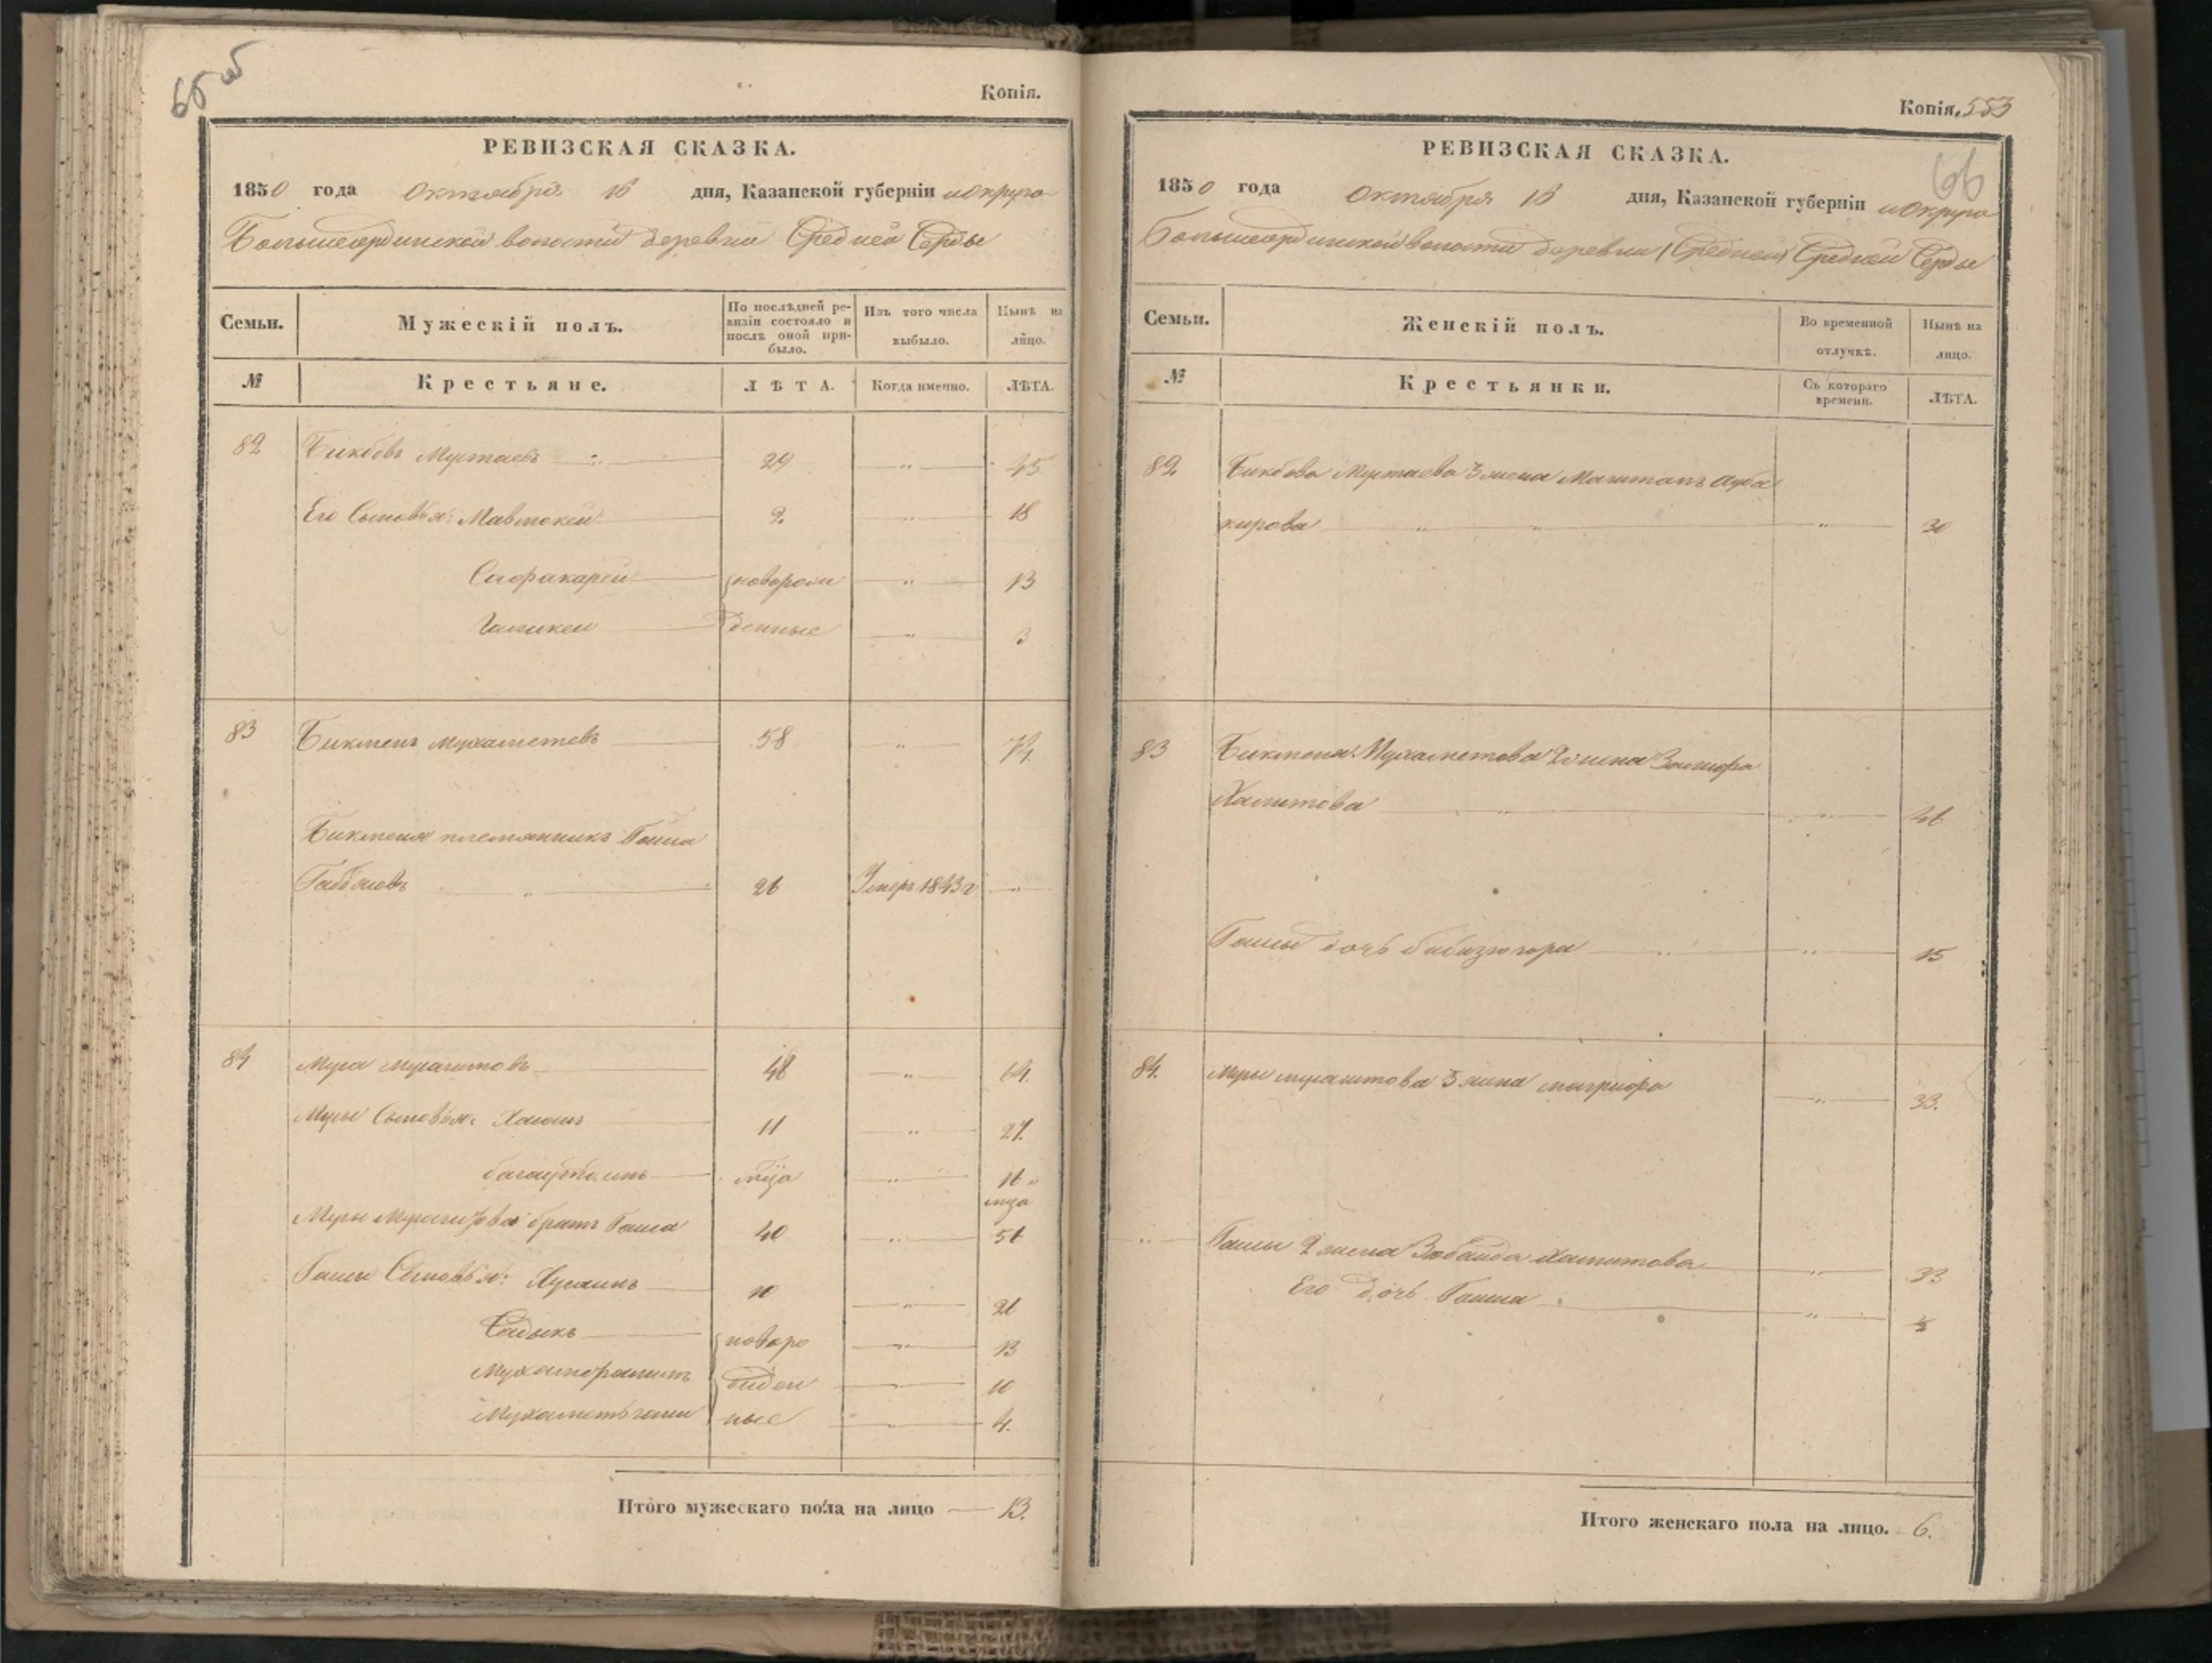 65 об
Копія.
РЕВИЗСКАЯ СКАЗКА.
1850 года октября 16 дня, Казанской губерніи и округа
Большесердинской волости деревни Средней Серды
Семьи.
Мужескій полъ.
По послѣдней ре-
визіи состояло и
послѣ оной при-
было.
Изъ того числа
выбыло.
Нынѣ на
лицо.
№
Крестьяне.
ЛѢТА.
Когда именно.
ЛѢТА.
82 Бикбовъ Муртаевъ 29 „ 45
Его Сыновья: 2 „ 18
Сафакарей новорож „ 13
денные „ 3
83 Бикмень Мухаметевъ 58 „ 74
Бикменя племянникъ Гайша
26 Умеръ 1843 г „
84 Муса 48 „ 64.
Мусы Сыновья: 11 „ 27.
багаутдинъ мца „ 16 и
мца
Мусы братъ Гайша 40 „ 56
Гайши Сыновья: Хусаинъ 10 „ 26
Садыкъ новоро „ 13
Мухаморахимъ жден „ 10
Мухаметьгали ные „ 4.
Итого мужескаго пола на лицо 13.
Копія. 553
66
РЕВИЗСКАЯ СКАЗКА.
1850 года октября 16 дня, Казанской губерніи и округа
Большесердинской волости деревни (Средней) Средней Серды
Семьи.
Женскій полъ.
Во временной
отлучкѣ.
Нынѣ на
лицо.
№
Крестьянки.
Съ котораго
времени.
ЛѢТА.
82 Бикбова Муртаева 3 жена Абба
кирова „ „ „ 30
83 Бикменя Мухаметова 2 жена
Хамитова „ „ 46
Гайши дочь бибизюгора „ „ 15
84. Мусы 3 жена „ 33.
„ Гайши 2 жена Зюбайда Хамитова „ 33
Его дочь Гайша „ ½
Итого женскаго пола на лицо. 6.